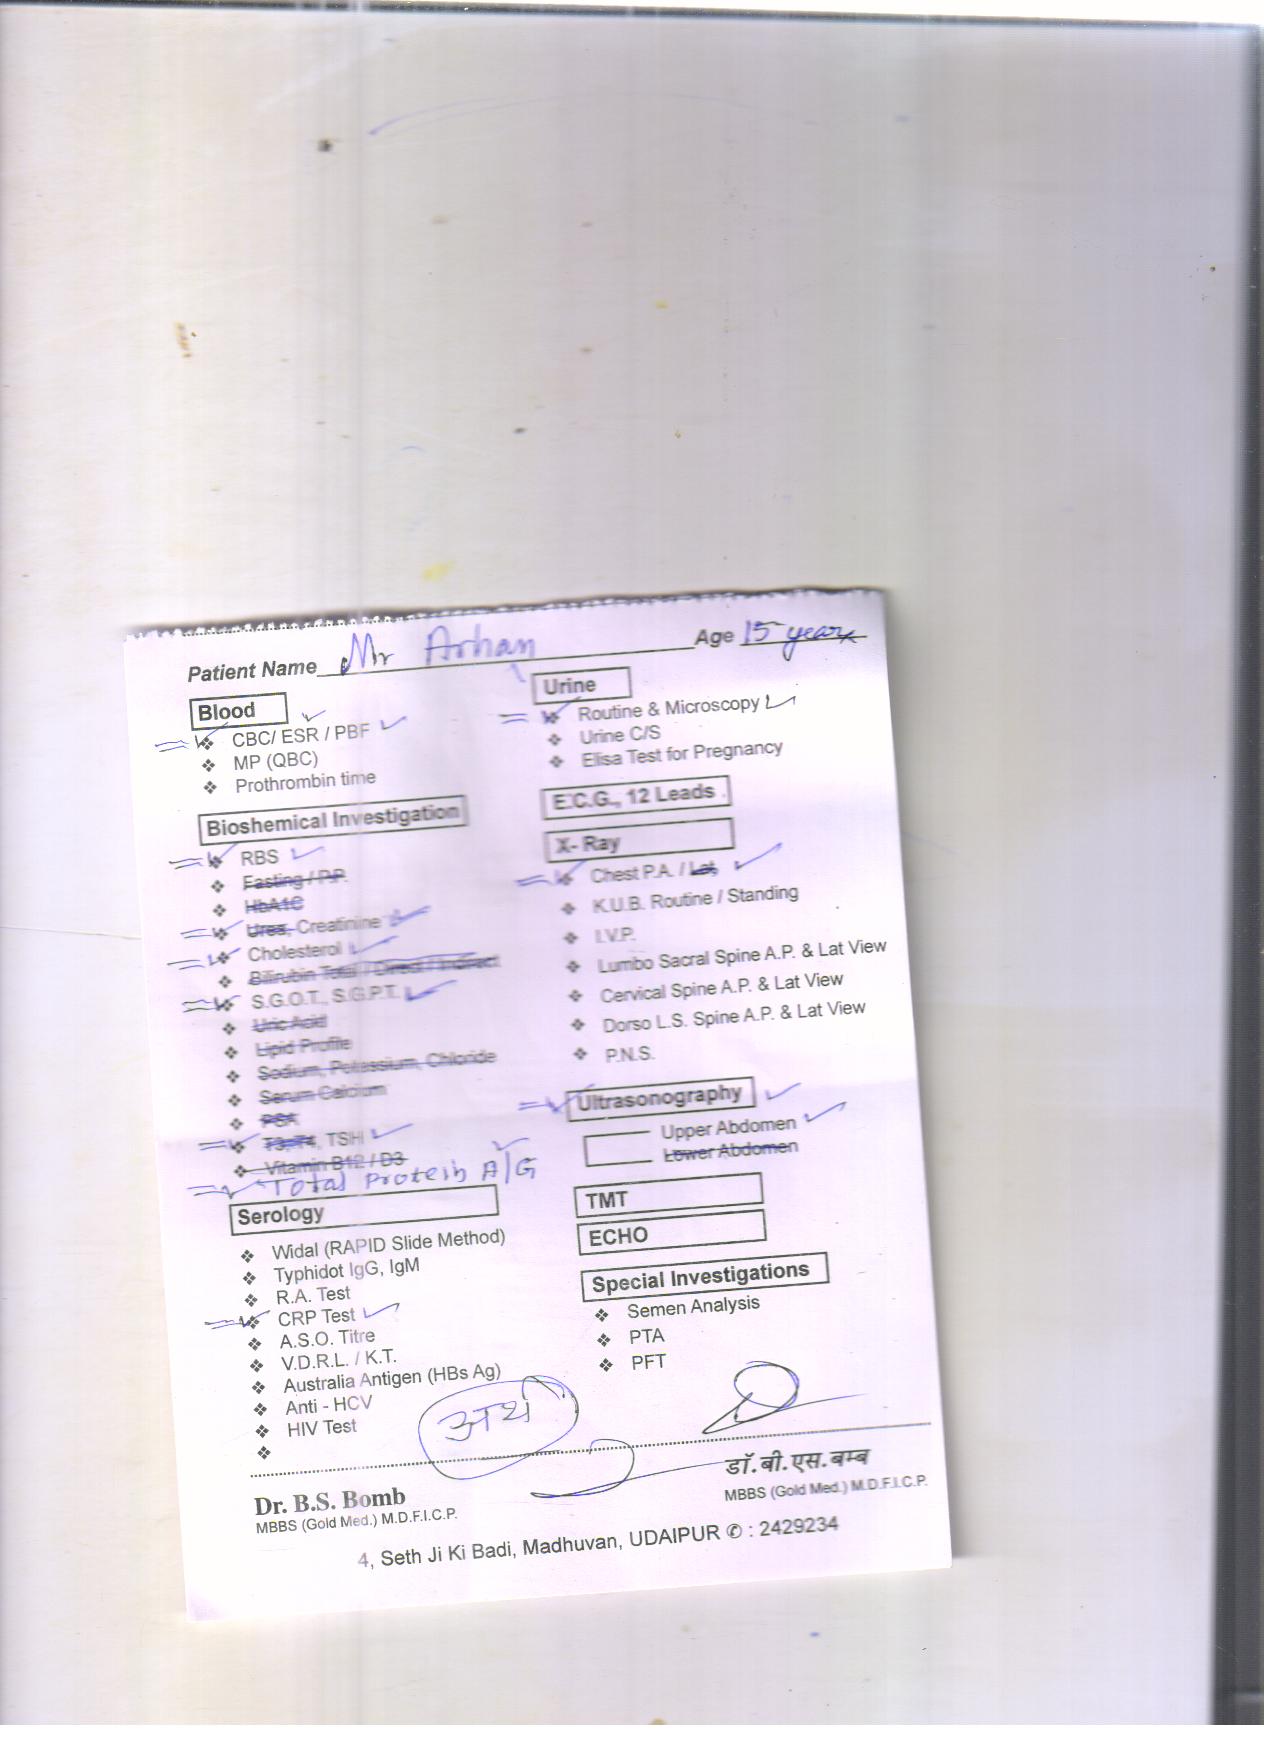 Patient Name Mr Arhan Age 15 years
Blood
CBC/ ESR / PBF
MP (QBC)
Prothrombin time
Bioshemical Investigation
RBS
Fasting / P.P.
HbA1C
Urea, Creatinine
Cholesterol
Bilirubin Total / Direct / Indirect
S.G.O.T., S.G.P.T.
Uric Acid
Lipid Profile
Sodium, Potassium, Chloride
Serum Calcium
PSA
T3, T4, TSH
Vitamin B12 / D3
Total Protein A/G
Serology
Widal (RAPID Slide Method)
Typhidot IgG, IgM
R.A. Test
CRP Test
A.S.O. Titre
V.D.R.L. / K.T.
Australia Antigen (HBs Ag)
Anti - HCV
HIV Test
Urine
Routine & Microscopy
Urine C/S
Elisa Test for Pregnancy
E.C.G., 12 Leads
X- Ray
Chest P.A. / Lat.
K.U.B. Routine / Standing
I.V.P.
Lumbo Sacral Spine A.P. & Lat View
Cervical Spine A.P. & Lat View
Dorso L.S. Spine A.P. & Lat View
P.N.S.
Ultrasonography
Upper Abdomen
Lower Abdomen
TMT
ECHO
Special Investigations
Semen Analysis
PTA
PFT
Dr. B.S. Bomb
MBBS (Gold Med.) M.D.F.I.C.P.
डॉ.बी.एस.बम्ब
MBBS (Gold Med.) M.D.F.I.C.P.
4, Seth Ji Ki Badi, Madhuvan, UDAIPUR ✆ : 2429234